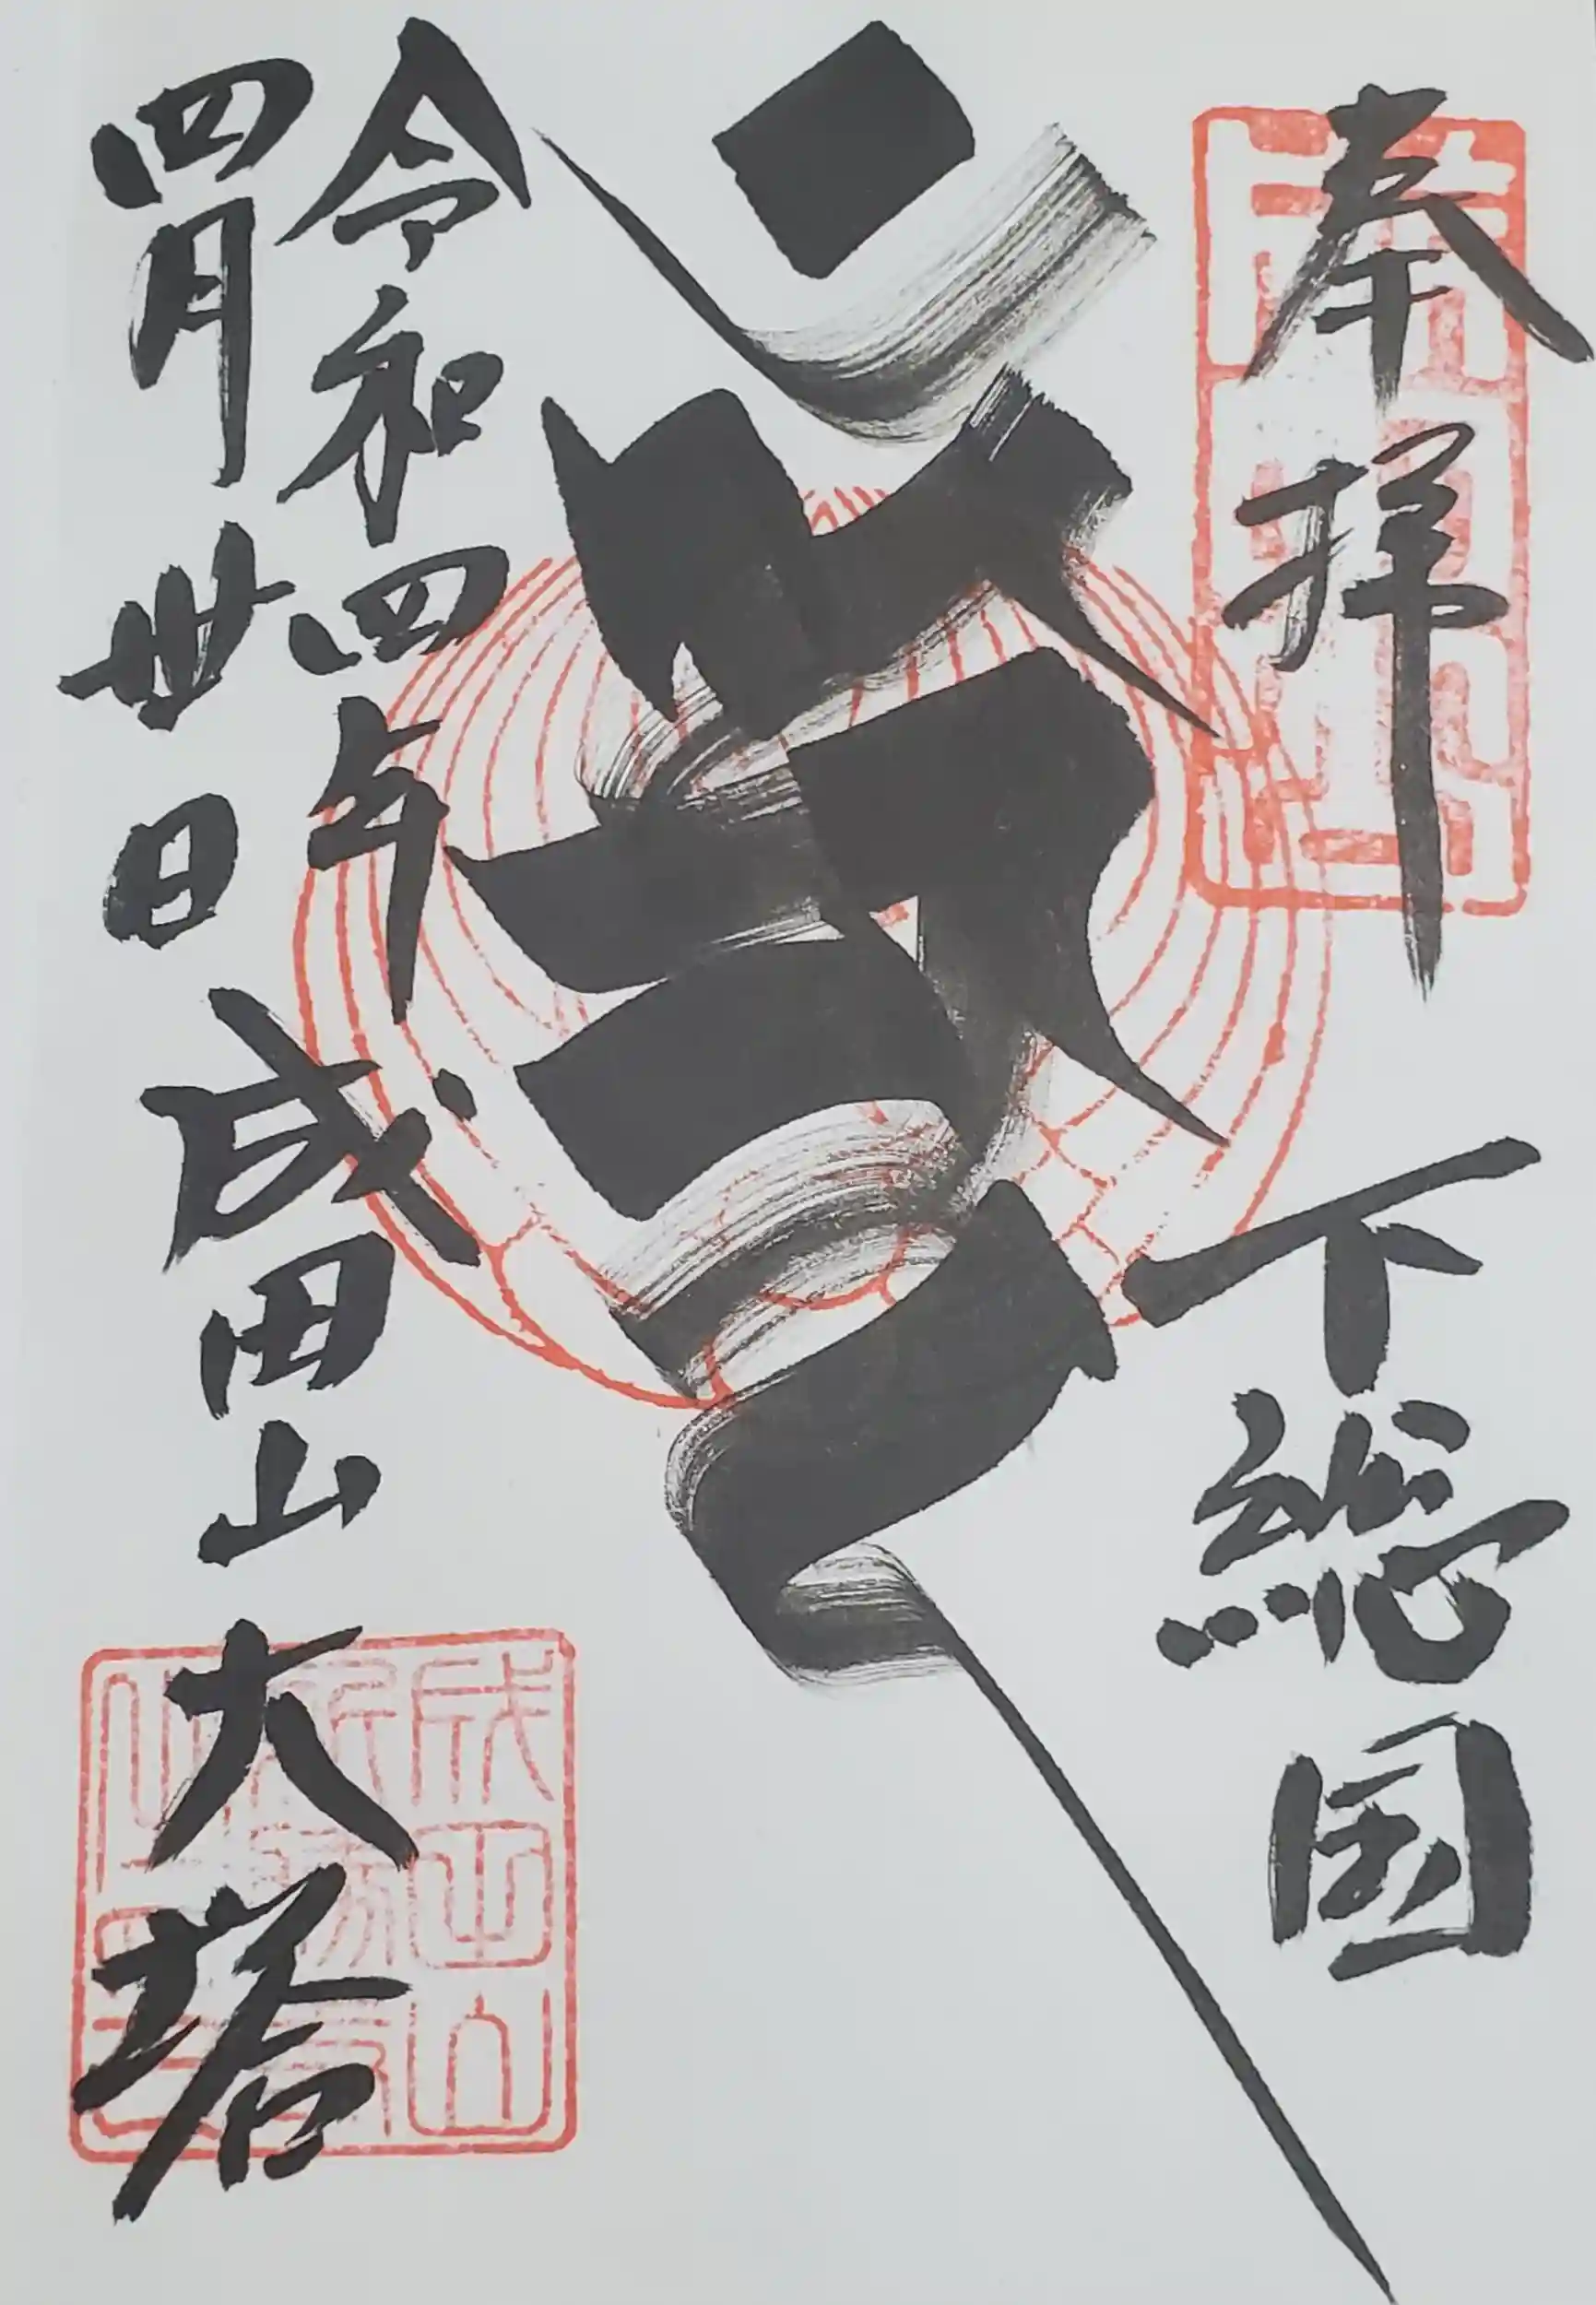 奉拝 下総国
令和四年
四月卅日 成田山 大塔
成田山